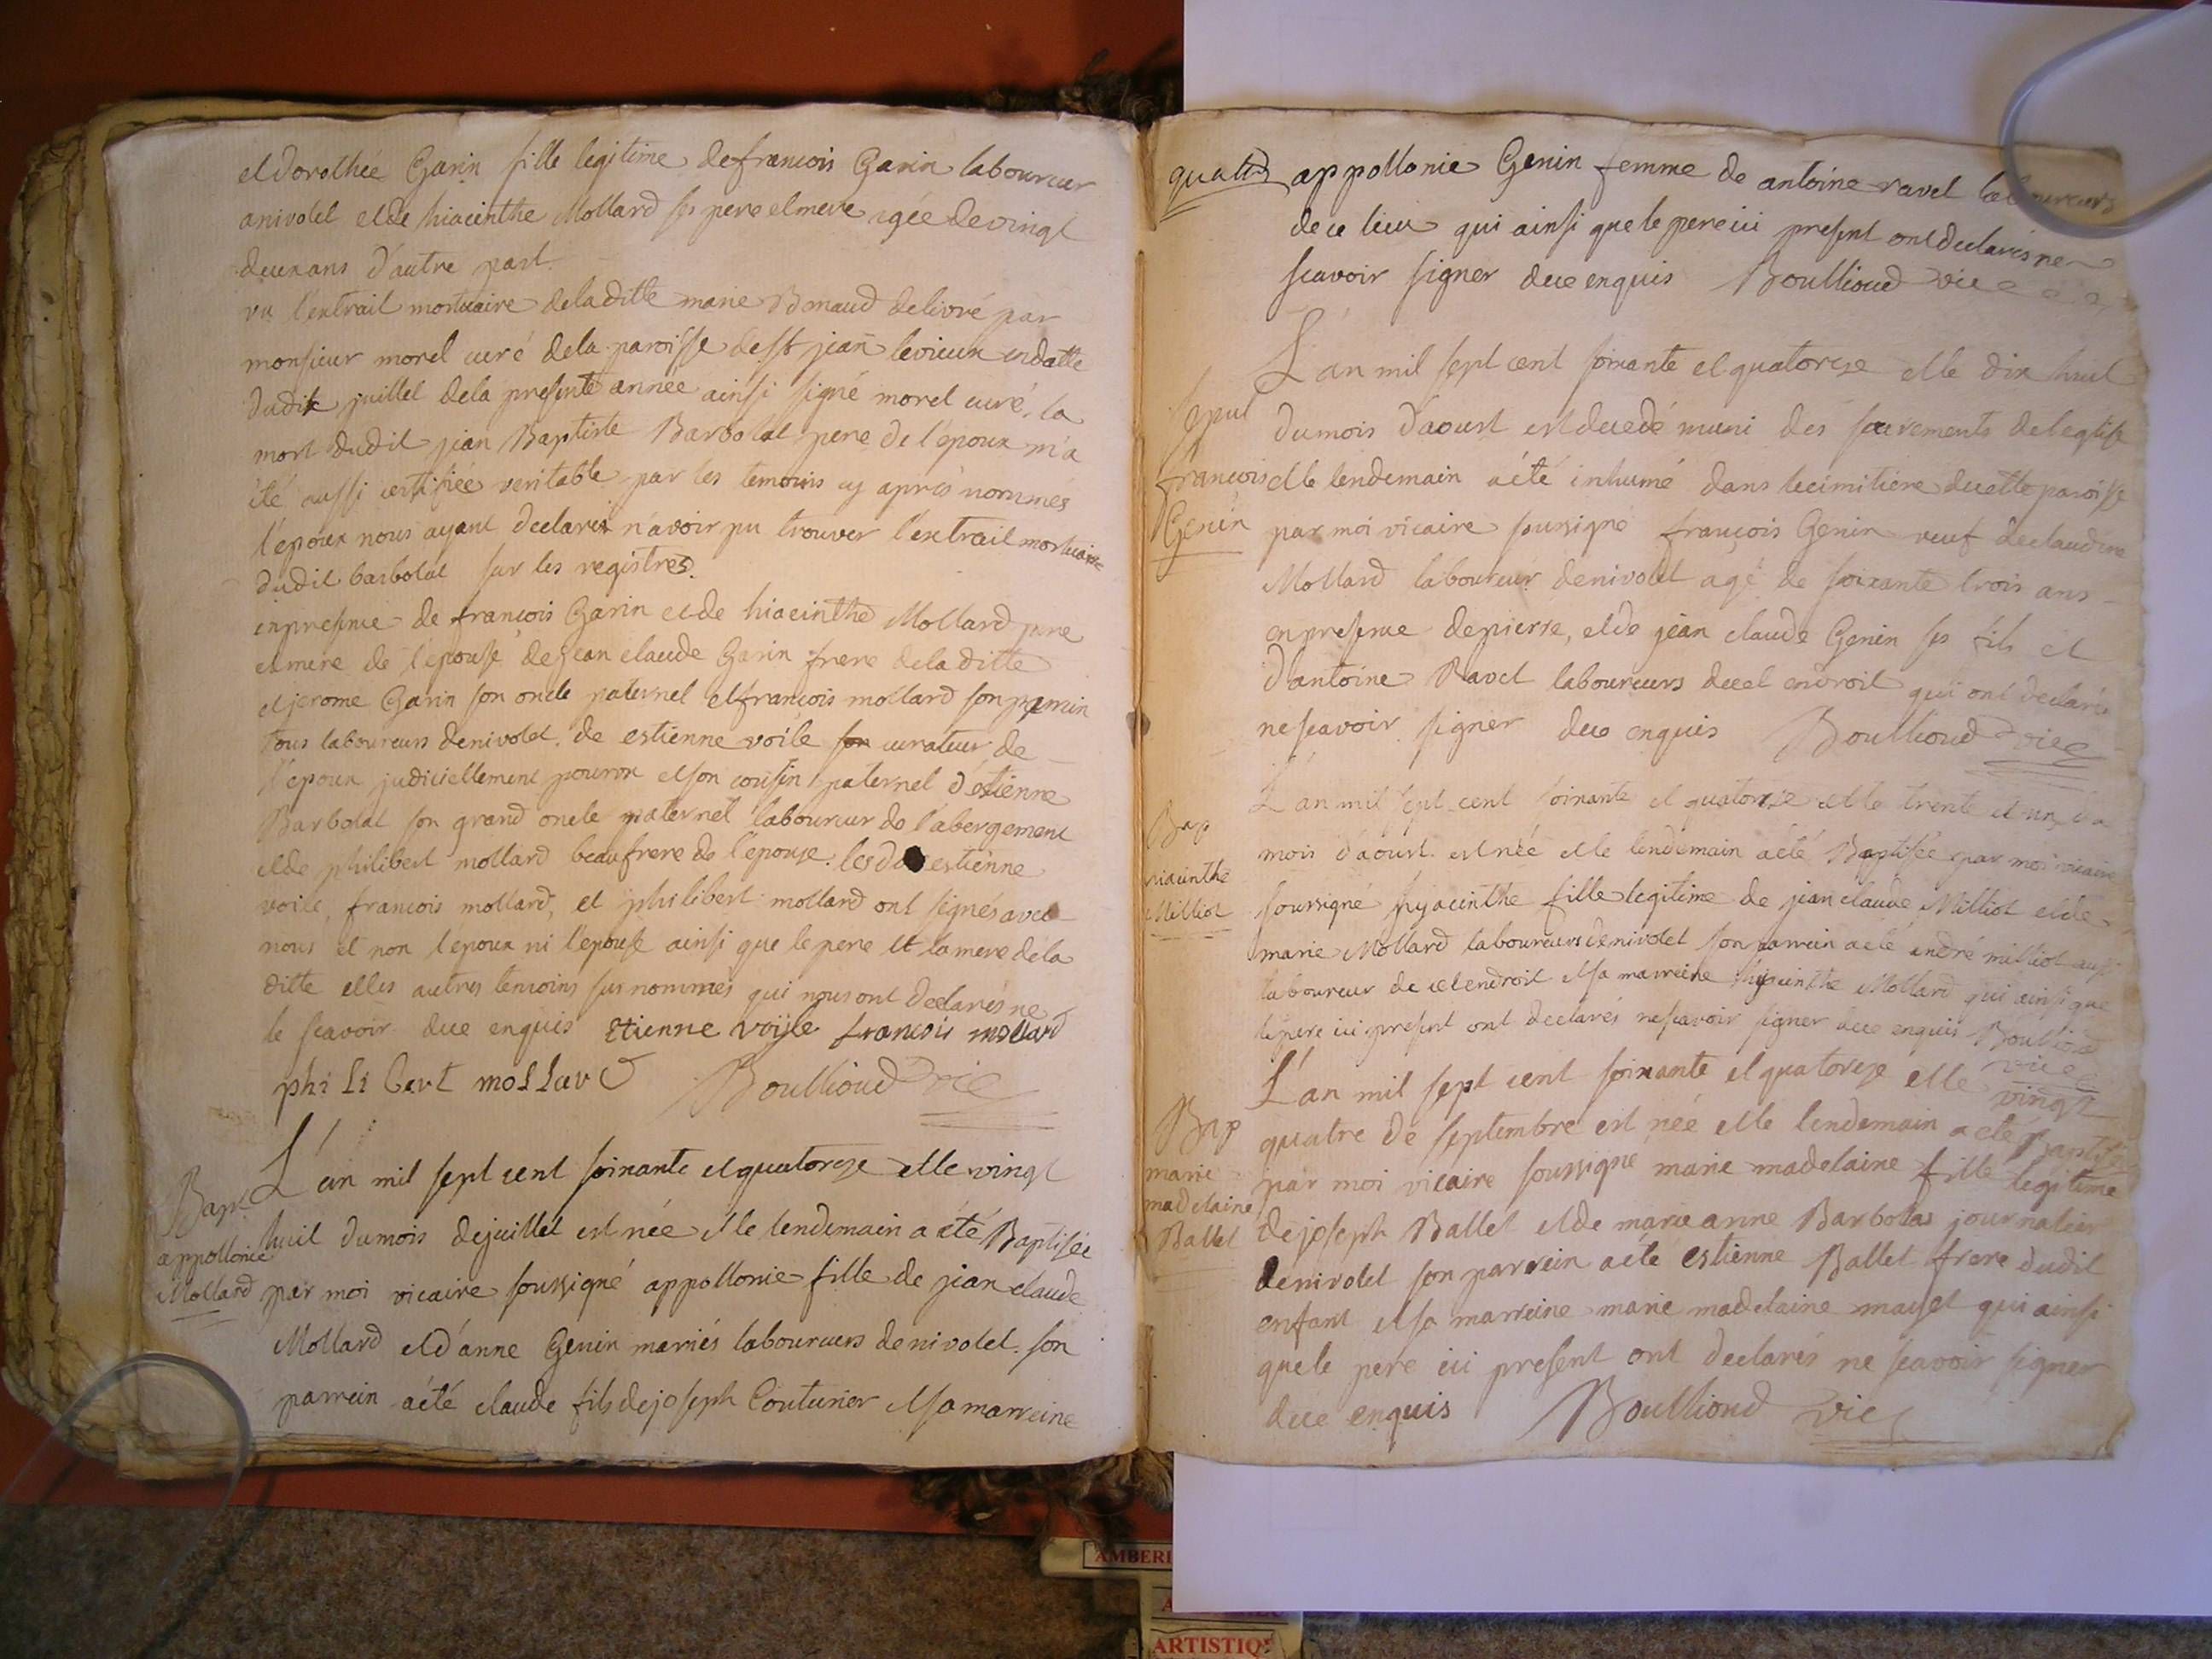 et dorothée Garin fille legitime de francois Garin laboureur
a nivolet et de hiacinthe Mollard ses pere et mere agée de vingt
deux ans d'autre part.
vu l'extrait mortuaire de la ditte marie delivré par
monsieur morel curé de la paroisse de st jean levieux en datte
du dix juillet de la presente année ainsi signé morel curé, la
mort dudit jean Baptiste Barbolat pere de l'epoux m'a
été aussi certifiée veritable par les temoins cy après nommés
l'epoux nous ayant declaré n'avoir pu trouver l'extrait mortuaire
dudit barbolat sur les registres.
in presence de francois Garin et de hiacinthe Mollard pere
et mere de l'epouse, de jean claude Garin frere de la ditte
et jerome Garin son oncle paternel et francois mollard son parrin
tous laboureurs de nivolet. de estienne voile curateur de
l'epoux judiciellement pourvu et son cousin paternel d'etienne
Barbolat son grand oncle paternel laboureur de l'abergement
et de philibert mollard beaufrere de l'epouse. lesd estienne
voile, francois mollard, et philibert mollard ont signés avec
nous et non l'epoux ni l'epouse ainsi que le pere et la mere de la
ditte et les autres temoins susnommés qui nous ont declarés ne
le scavoir de ce enquis Etienne voyle francois mollard
philibert mollard Boullioud vic
Bap. L'an mil sept cent soixante et quatorze et le vingt
appollonie huit du mois de juillet est née et le lendemain a été Baptisée
Mollard par moi vicaire soussigné appollonie fille de jean claude
Mollard et d'anne Genin mariés laboureurs de nivolet. son
parrein a été claude fils de joseph Couturier et sa marreine
quatre appollonie Genin femme de antoine ravet laboureurs
de ce lieu qui ainsi que le pere ici present ont declarés ne
scavoir signer de ce enquis Boullioud vic
L'an mil sept cent soixante et quatorze et le dix huit
Sepul du mois d'aoust est decedé muni des sacrements de leglise
francois et le lendemain a été inhumé dans le cimitiere de cette paroisse
Genin par moi vicaire soussigné françois Genin veuf de claudine
Mollard laboureur de nivolet agé de soixante trois ans
en presence de pierre, et de jean claude Genin ses fils et
d'antoine Ravet laboureurs de cet endroit qui ont declaré
ne scavoir signer de ce enquis Boullioud vic
L'an mil sept cent soixante et quatorze et le trente et un du
Bap mois d'aoust est née et le lendemain a été Baptisée par moi vicaire
hiacinthe
Milliot soussigné hyacinthe fille legitime de jean claude Milliot et de
marie Mollard laboureurs de nivolet son parrein a été andré milliot aussi
laboureur de cet endroit et sa marreine hyacinthe Mollard qui ainsi que
le pere ici present ont declarés ne scavoir signer de ce enquis Boullioud
vic
L'an mil sept cent soixante et quatorze et le vingt
Bap quatre de septembre est née et le lendemain a été Baptisée
marie par moi vicaire soussigné marie madelaine fille legitime
madelaine
Ballet de joseph Ballet et de marie anne Barbolat journalier
de nivolet son parrein a été estienne Ballet frere dudit
enfant et sa marreine marie madelaine qui ainsi
que le pere ici present ont declarés ne scavoir signer
de ce enquis Boullioud vic
ARTISTIQ